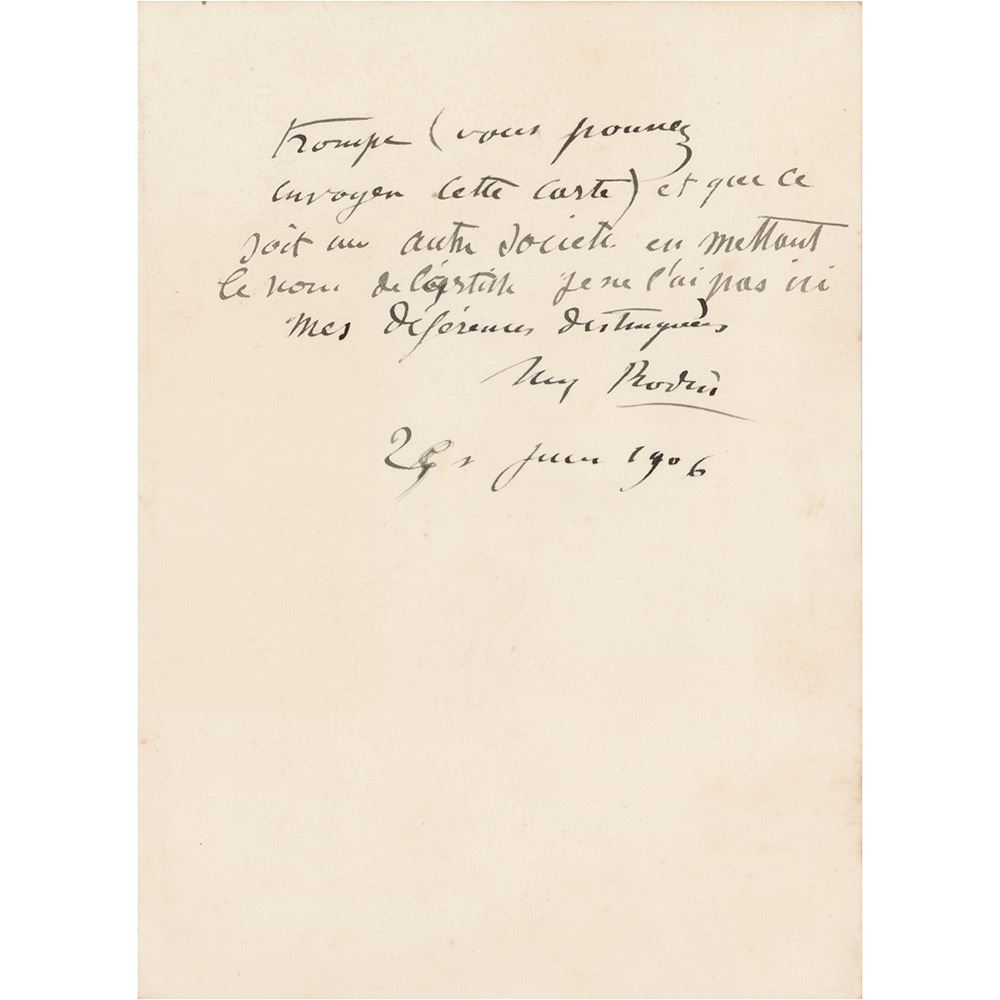 trompe (vous pouvez
envoyer cette carte) et que ce
soit un autre societe en mettant
le nom de l'artiste je ne l'ai pas ici
Mes déférences distinguées
Aug Rodin
juin 1906